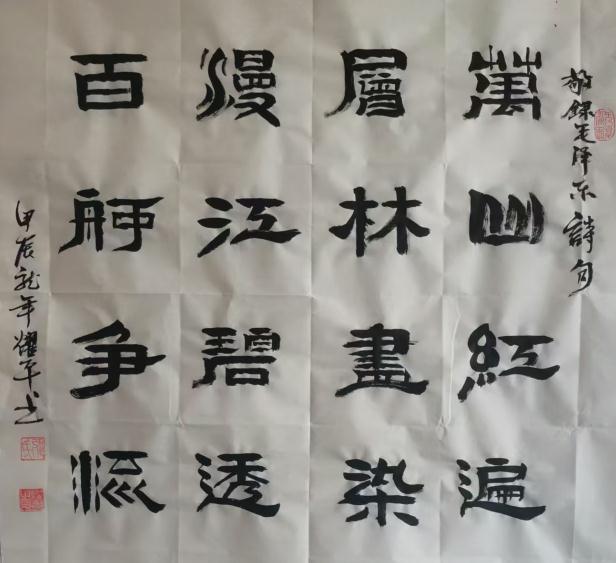 敬録毛泽东詩句
萬山紅遍
層林盡染
漫江碧透
百舸争流
甲辰龙年耀平书